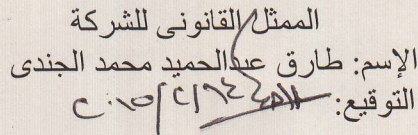 الممثل القانونى للشركة
الإسم: طارق عبدالحميد محمد الجندى
التوقيع: ٢٠١٥/٢/١٤